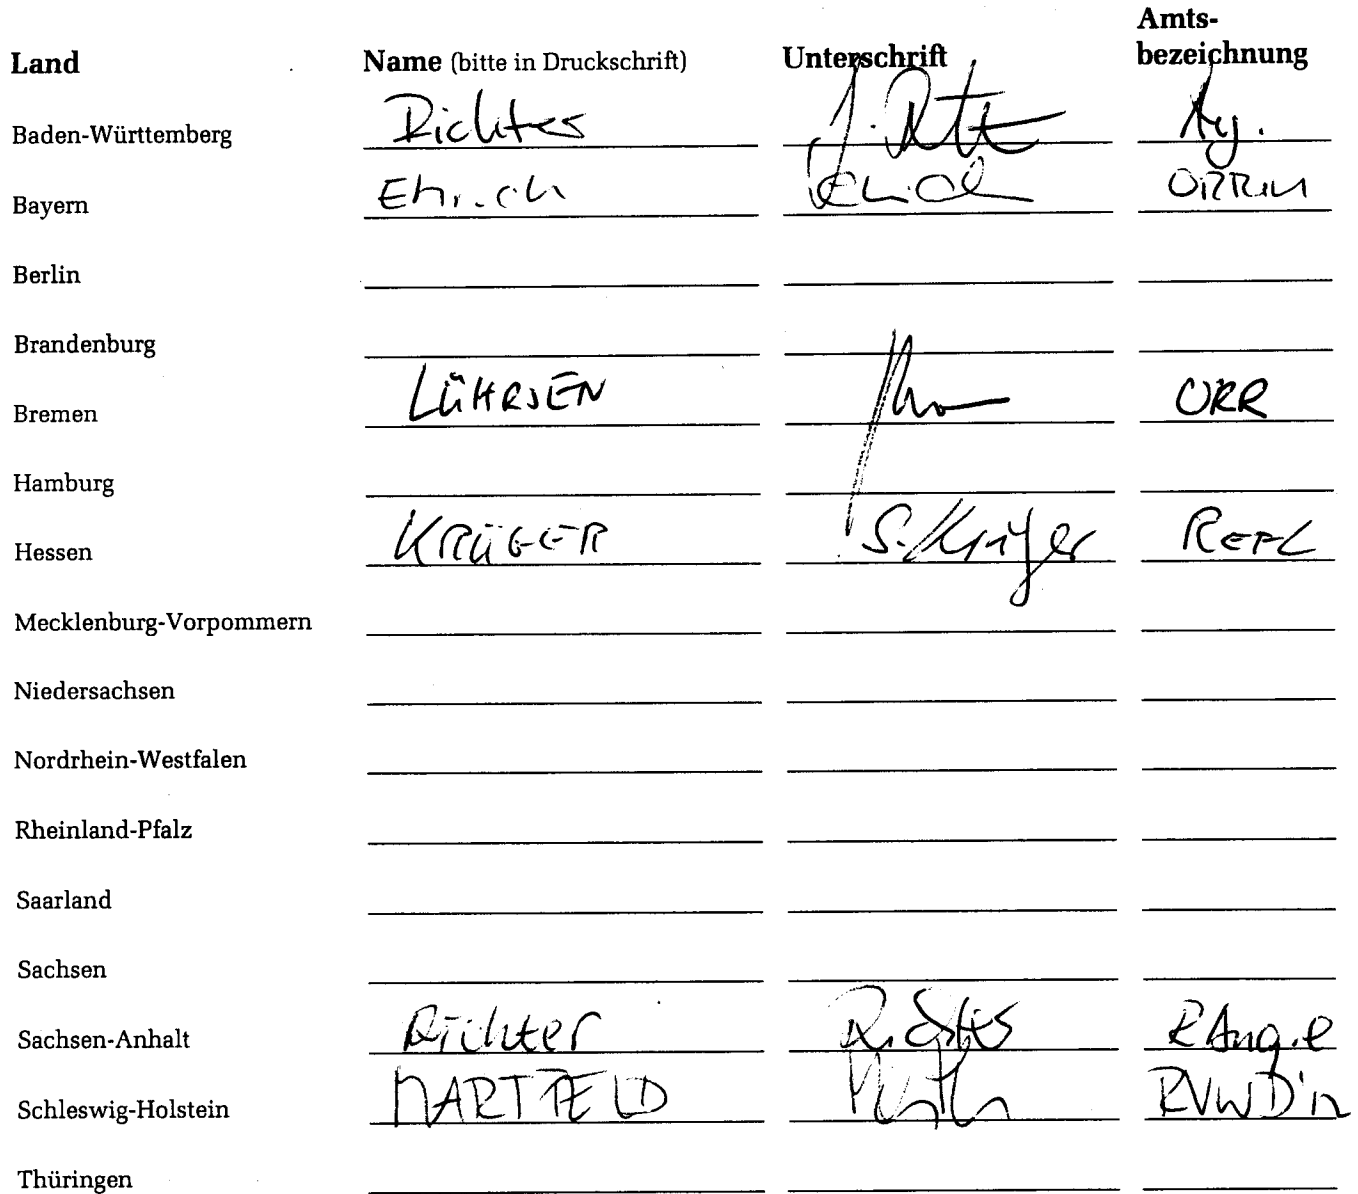 Land Name (bitte in Druckschrift) Unterschrift Amts-
bezeichnung
Baden-Württemberg Richter
Bayern Ehrich ORRin
Berlin
Brandenburg
Bremen LÜHRSEN ORR
Hamburg
Hessen KRÜGER S. Krüger REFL
Mecklenburg-Vorpommern
Niedersachsen
Nordrhein-Westfalen
Rheinland-Pfalz
Saarland
Sachsen
Sachsen-Anhalt Richter Richter RAng.e
Schleswig-Holstein MARTFELD
Thüringen